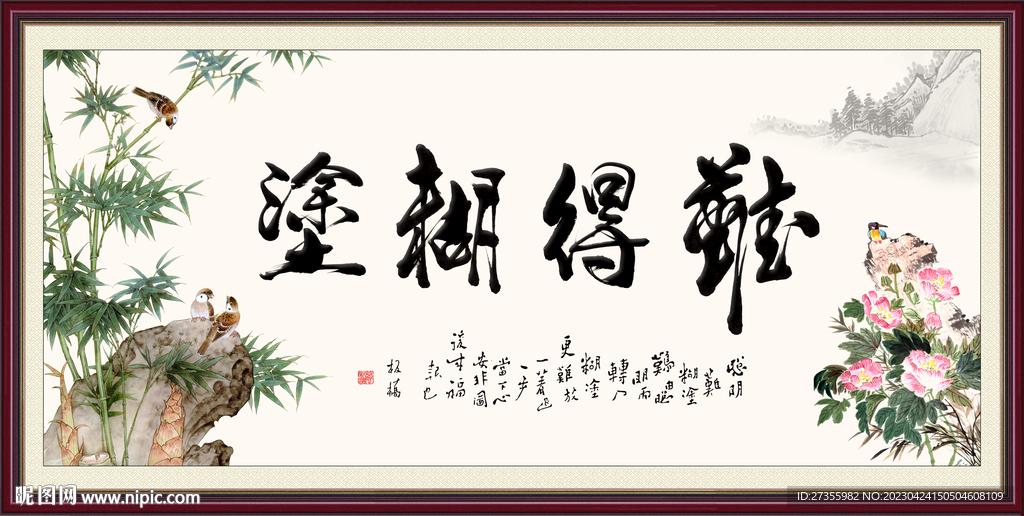 難得糊塗
聰明
難
糊塗
難由聰
明而
轉入
糊塗
更難放
一著退
一步
當下心
安非圖
後来福
報也
板橋
昵图网 www.nipic.com
ID:27355982 NO:20230424150504608109